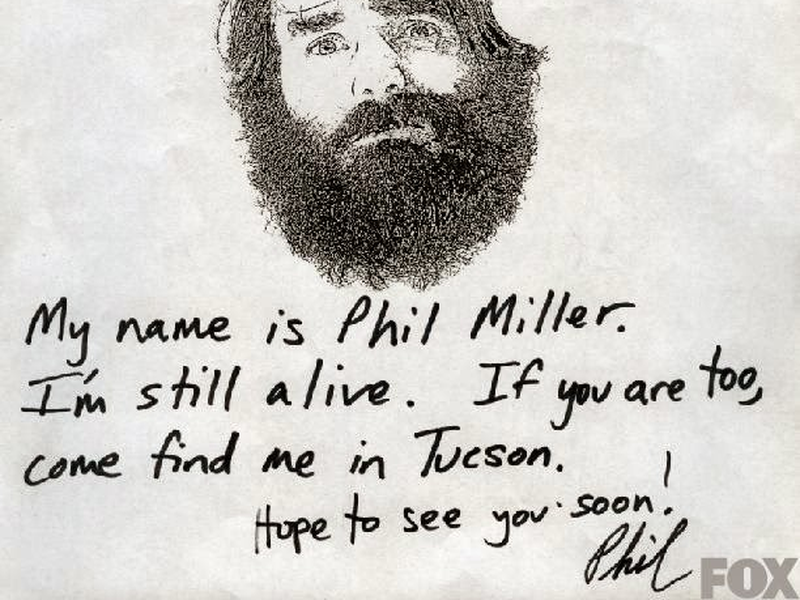 My name is Phil Miller.
I'm still alive. If you are too,
come find me in Tucson.
Hope to see you soon!
Phil
FOX